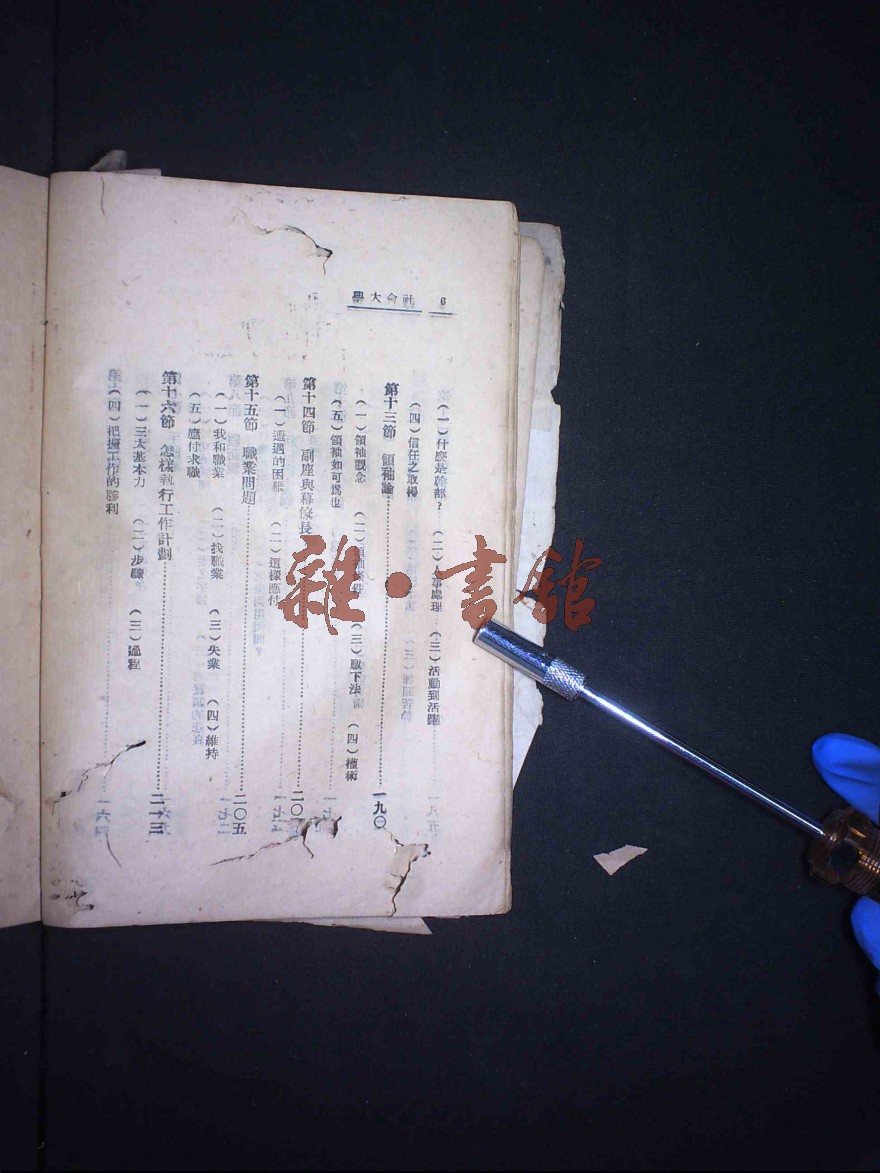 6 社會大學
(一)什麼是幹部? (二)人事處理 (三)活動到活躍
(四)信任之取得
第十三節 領袖論 一九〇
(一)領袖觀念 (三)馭下法 (四)權術
(五)領袖如可爲也
第十四節 副座與幕僚長 二〇
(一)遭遇的困難 (二)這樣應付
第十五節 職業問題 二〇五
(一)我和職業 (二)找職業 (三)失業 (四)維持
(五)應付求職
第十六節 怎樣執行工作計劃 二一三
(一)三大基本力 (二)步驟 (三)過程
(四)把握工作的勝利
雜·書館